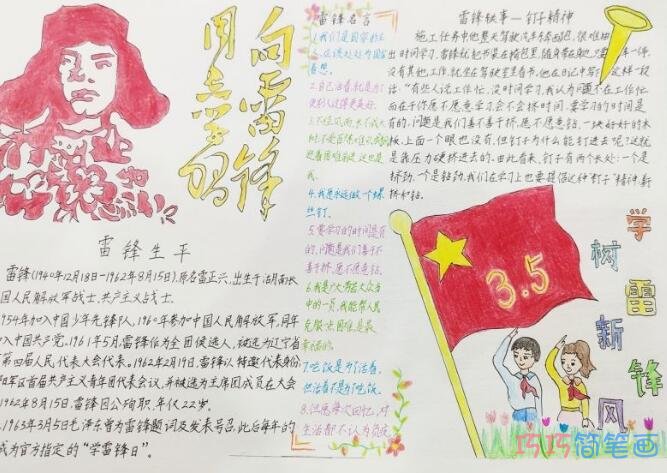 向雷锋
同志学习
雷锋生平
雷锋(1940年12月18-1962年8月15),原名雷正兴,出生于湖南长
国人民解放军战士,共产主义战士.
954年加入中国少年先锋队,1960年参加中国人民解放军,同年
入中国共产党.1961年5月,雷锋作为全团候选人,被选为辽宁省
第四届人民代表大会代表.1962年2月19日,雷锋以特邀代表身份
阳军区首届共产主义青年团代表会议,并被选为主席团成员在大会
1962年8月15日,雷锋因公殉职,年仅22岁.
1963年3月5日毛泽东曾为雷锋题词及发表号召,此后每年的
成为官方指定的“学雷锋日”.
雷锋名言
1.我们是国家的主
人,应该处处为国家
着想.
2.自己活着,就是为了
使别人过得更美好.
4.我愿永远做一个螺
丝钉.
5.要学习的时间是有
的,问题是我们善于不
善于挤,愿不愿意钻.
7.吃饭是为了活着,
但活着不是为了吃饭.
雷锋轶事—钉子精神
施工任务中他整天驾驶汽车
出时间学习,雷锋就把书装在挎包里,随身带在身边
没有其他工作,就坐在驾驶室里看书.他在日记中写下这样一段
话:“有些人说工作忙,没时间学习,我认为问题不在工作忙
而在于你愿不愿意学习会不会挤时间.要学习的时间是
有的,问题是我们善不善于挤,愿不愿意钻.一块好好的木
板,上面一个眼也没有,但钉子为什么能钉进去呢?这就
是靠压力硬挤进去的.由此看来,钉子有两个长处:一个是
挤劲,一个是钻劲.我们在学习上也要提倡这种“钉子”精神,善于
挤和钻.
3.5
学雷锋
树新风
巧巧简笔画